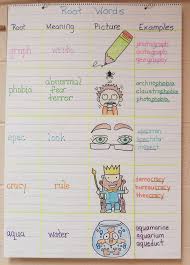 Root Words
Root Meaning Picture Examples
graph write photograph
autograph
geography
phobia abnormal fear terror arachnophobia
claustrophobia
photophobia
spec look spectator
inspect
cracy rule democracy
bureaucracy
theocracy
aqua water aquamarine
aquarium
aqueduct